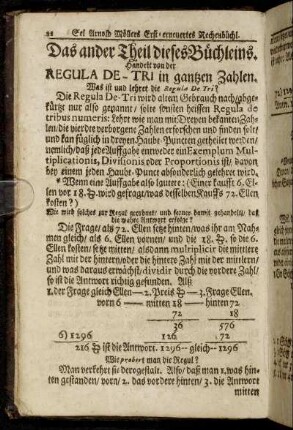 22 Sel Arnold Möllers Erst-erneuertes Rechenbüchl.
Das ander Theil dieses Büchleins.
Händelt von der
REGULA DE-TRI in gantzen Zahlen.
Was ist und lehret die Regula De Tri?
Die Regula De-Tri wird altem Gebrauch nach/abge-
kürtzt nur also genannt/ solte sonsten heissen Regula de
tribus numeris: Lehrt wie man mit Dreyen bekanten Zah-
len/ die vierdte verborgene Zahlen erforschen und finden solt/
und kan füglich in dreyen Haubt-Puncten getheilet werden/
nemlich/ daß jede Auffgabe entweder ein Exempel zum Mul-
tiplicationis, Divisionis oder Proportionis ist/ davon
bey einem jeden Haubt-Punct absonderlich gelehret wird.
Wenn eine Auffgabe also lautere: (Einer kaufft 6. El-
len vor 18. wird gefragt/ was desselben Kauffs 72. Ellen
kosten?)
Wie wird solches zur Regul geordnet/ und ferner damit gehandelt/ daß
die wahre Antwort erfolge?
Die Frage/ als 72. Ellen setze hinten/ was ihr am Nah-
men gleich/ als 6. Ellen vornen/ und die 18. so die 6.
Ellen kosten/ setze mitten/ alsdann multiplicir die mittlere
Zahl mit der hintern/ oder die hintere Zahl mit der mittlern/
und was daraus erwächst/ dividir durch die vordere Zahl/
so ist die Antwort richtig gefunden. Als:
1. der Frage gleich Ellen — 2. Preis — 3. Frage Ellen.
vorn 6 — mitten 18 — hinten 72
72 18
36 576
6) 1296 126 72
216 ist die Antwort. 1296 — gleich — 1296
Wie probirt man die Regul?
Man verkehrt sie dergestalt. Also/ daß man 1. was hin-
ten gestanden/ vorn/ 2. das vordere hinten/ 3. die Antwort
mitten